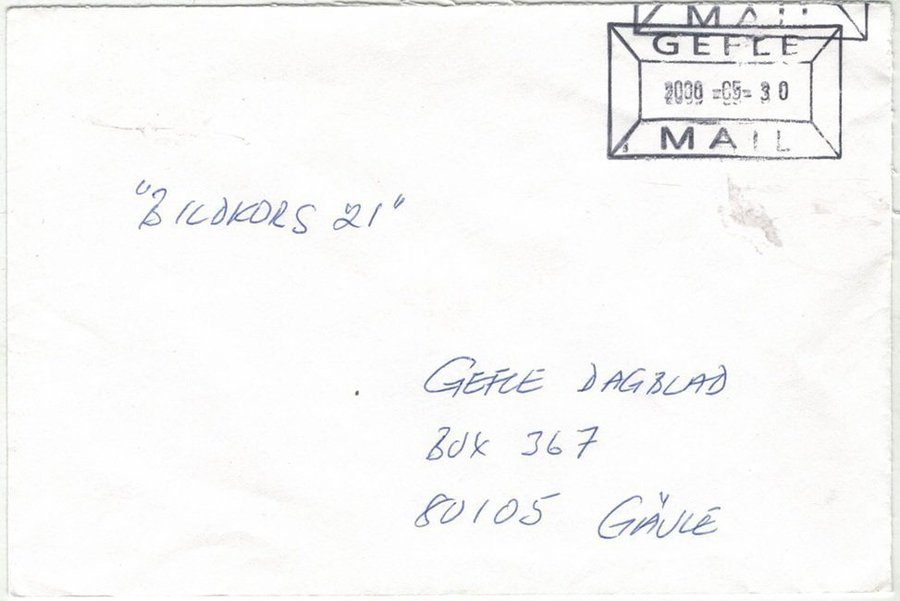 MAIL
GEFLE
2000-05-30
MAIL
"BILDKORS 21"
GEFLE DAGBLAD
BOX 367
80105 GÄVLE